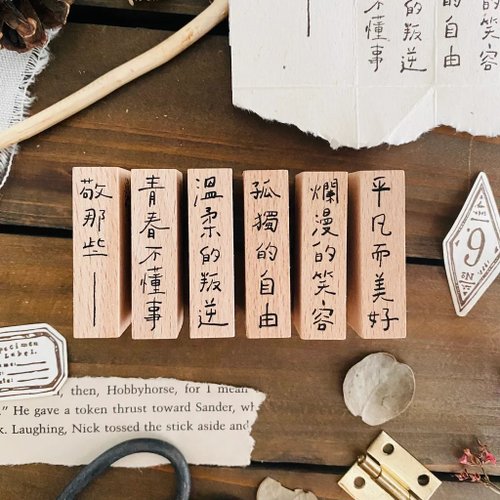 敬那些——
青春不懂事
溫柔的叛逆
孤獨的自由
爛漫的笑容
平凡而美好
懂事
的叛逆
的自由
的笑容
6
Specimen
Label.
Name:
Date:
, then, Hobbyhorse, for I mean
." He gave a token thrust toward Sander, wh
k. Laughing, Nick tossed the stick aside and